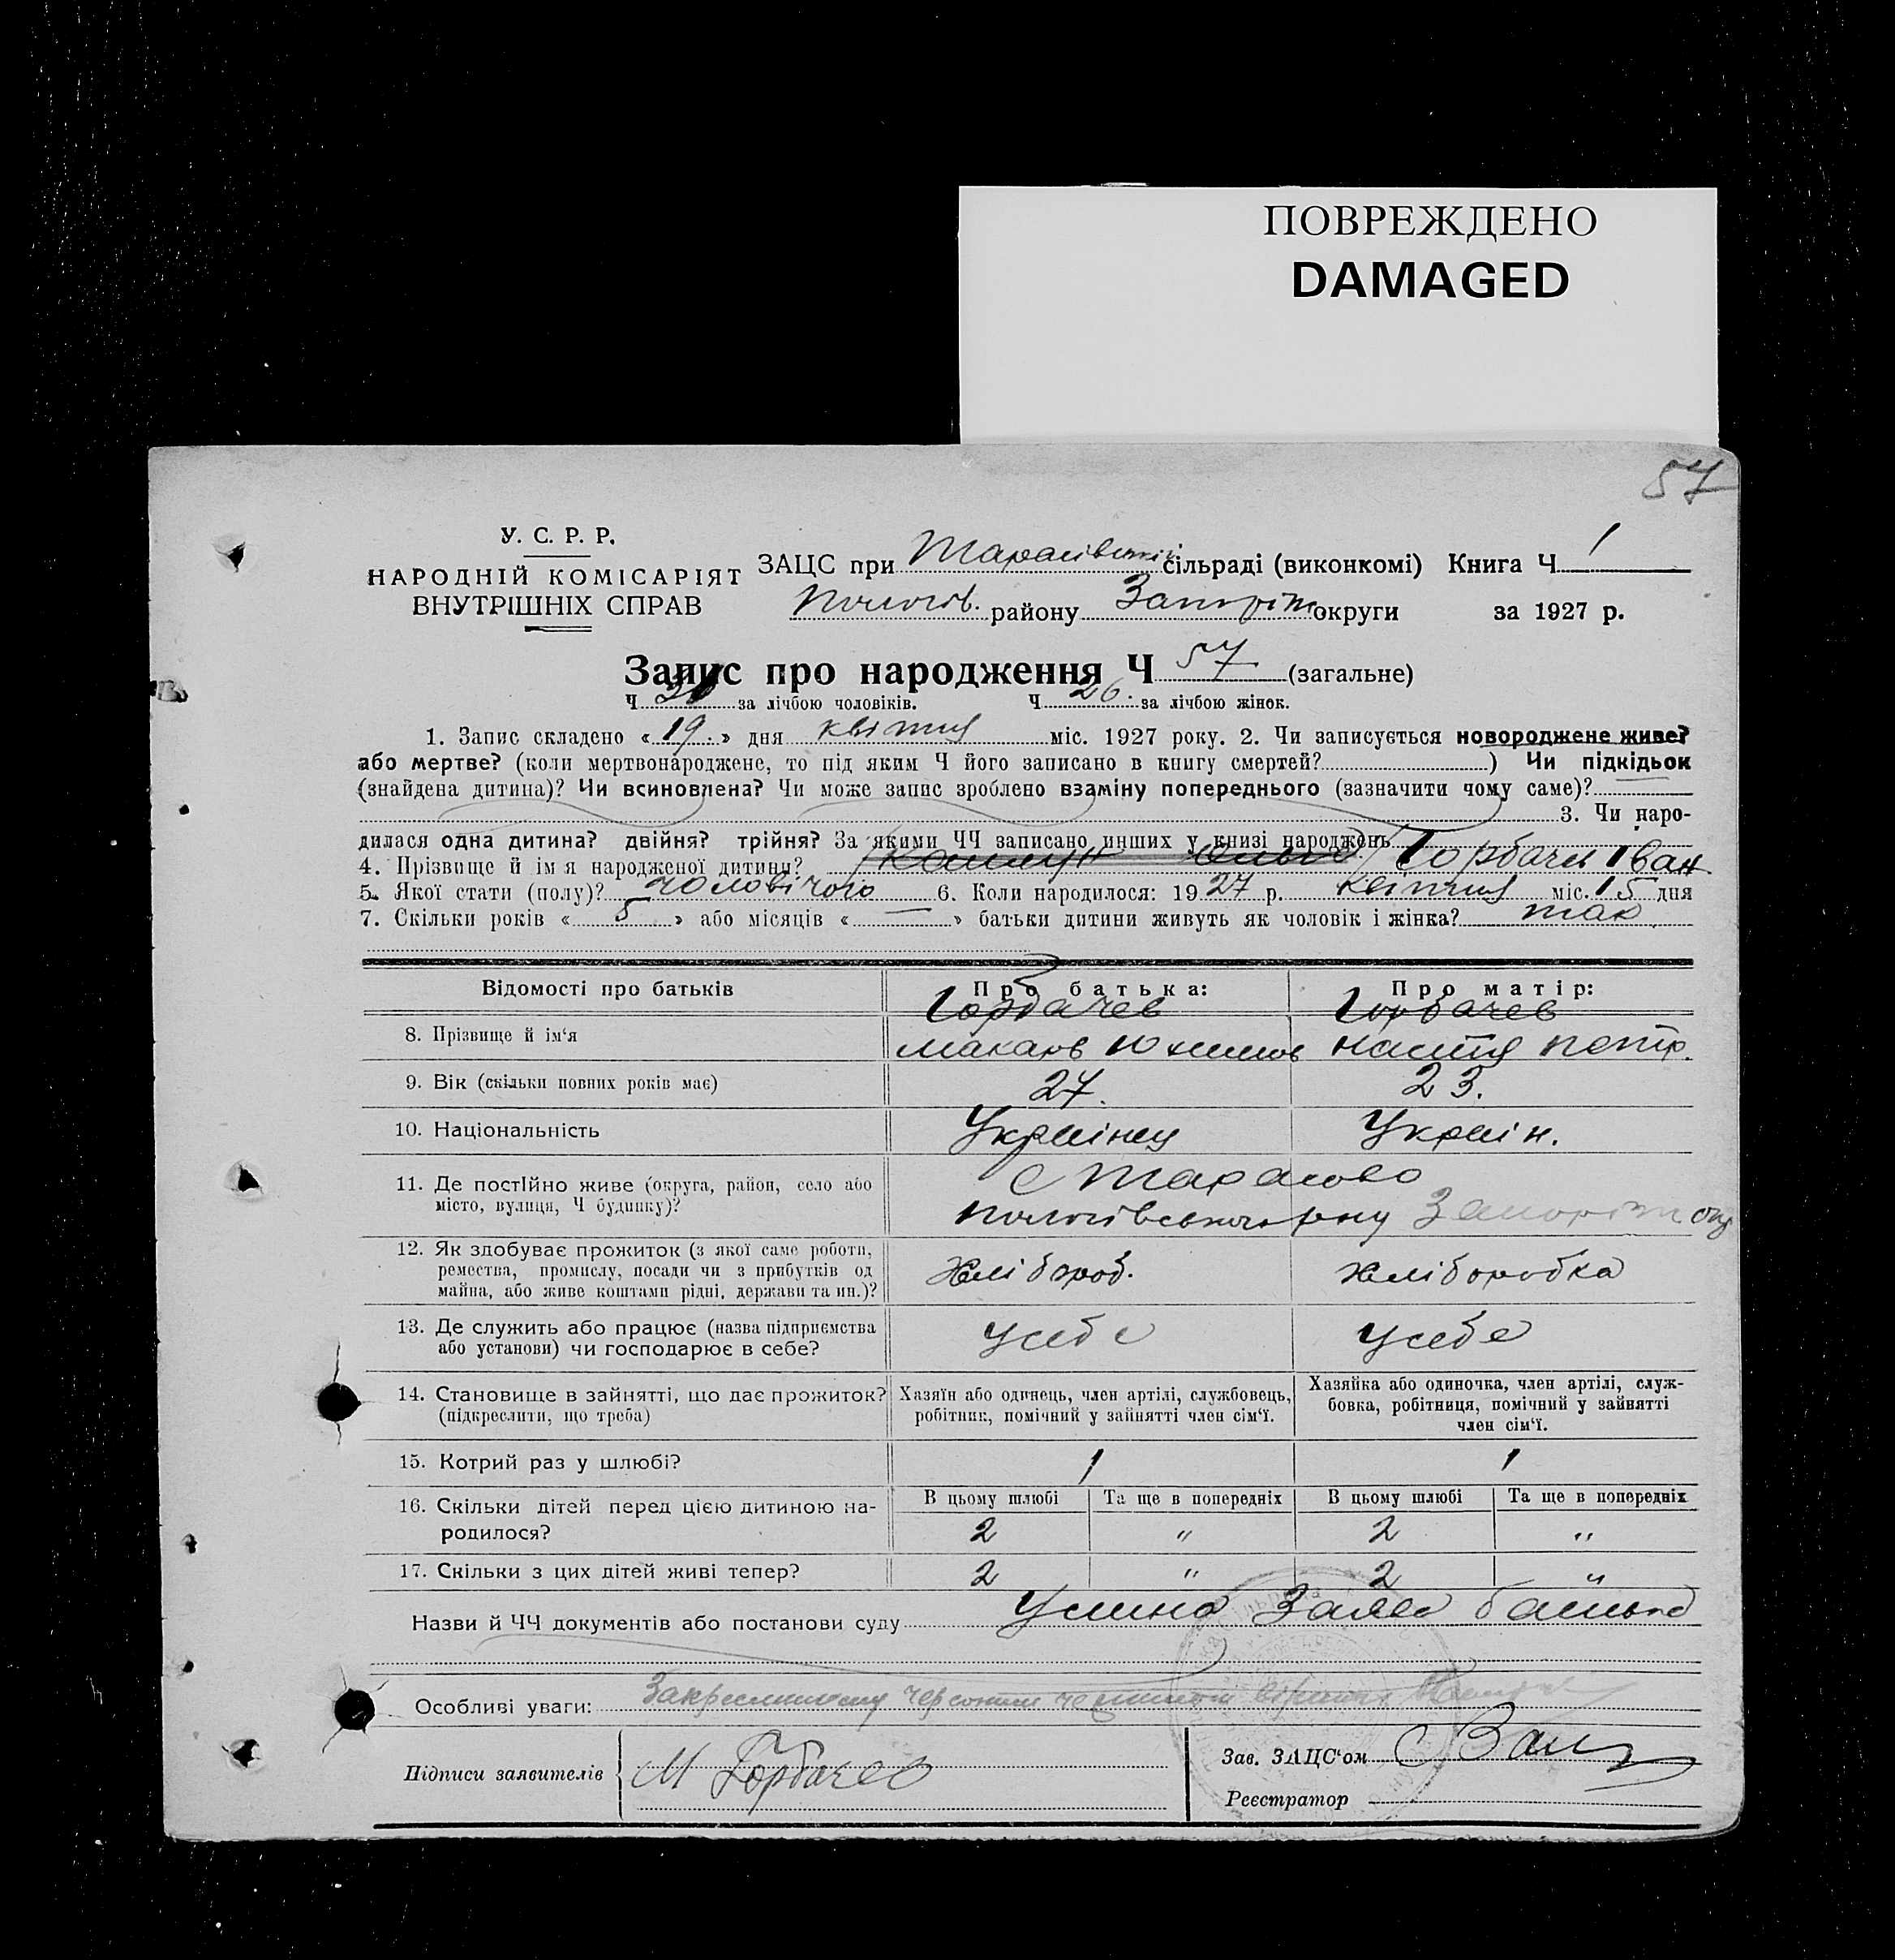 ПОВРЕЖДЕНО
DAMAGED
57
У. С. Р. Р.
НАРОДНІЙ КОМІСАРІЯТ
ВНУТРІШНІХ СПРАВ
ЗАЦС при Тарасівській сільраді (виконкомі) Книга Ч 1
Пологів. району Запоріж округи за 1927 р.
Запис про народження Ч 57 (загальне)
Ч за лічбою чоловіків. Ч 26. за лічбою жінок.
1. Запис складено « 19. » дня квітня міс. 1927 року. 2. Чи записується новороджене живе?
або мертве? (коли мертвонароджене, то під яким Ч його записано в книгу смертей? ) Чи підкідьок
(знайдена дитина)? Чи всиновлена? Чи може запис зроблено взаміну попереднього (зазначити чому саме)?
3. Чи наро-
дилася одна дитина? двійня? трійня? За якими ЧЧ записано инших у книзі народжень
4. Прізвище й ім'я народженої дитини? Горбачев Іван
5. Якої стати (полу)? чоловічого 6. Коли народилося: 1927 р. квітня міс. 15 дня
7. Скільки років « 5 » або місяців « — » батьки дитини живуть як чоловік і жінка? так
Відомості про батьків Про батька: Про матір:
Горбачев Горбачев
8. Прізвище й ім'я Макарь Юхимов Настя Петр.
9. Вік (скільки повних років має) 27. 23.
10. Національність Українец Украін.
11. Де постійно живе (округа, район, село або
місто, вулиця, Ч будинку)?
с Тарасово
Пологівського рну Запоріж окр
12. Як здобуває прожиток (з якої саме роботи,
ремества, промислу, посади чи з прибутків од
майна, або живе коштами рідні, держави та ин.)?
Хлібороб. хліборобка
13. Де служить або працює (назва підприємства
або установи) чи господарює в себе?
У себе У себе
14. Становище в зайнятті, що дає прожиток?
(підкреслити, що треба)
Хазяїн або одинець, член артілі, службовець,
робітник, помічний у зайнятті член сім'ї.
Хазяйка або одиночка, член артілі, служ-
бовка, робітниця, помічний у зайнятті
член сім'ї.
15. Котрий раз у шлюбі? 1 1
16. Скільки дітей перед цією дитиною на-
родилося?
В цьому шлюбі Та ще в попередніх В цьому шлюбі Та ще в попередніх
2 " 2 "
17. Скільки з цих дітей живі тепер? 2 " 2 "
Назви й ЧЧ документів або постанови суду Усина Заява батька
Особливі уваги:
Підписи заявителів М Горбачев
Зав. ЗАЦС'ом
Реєстратор